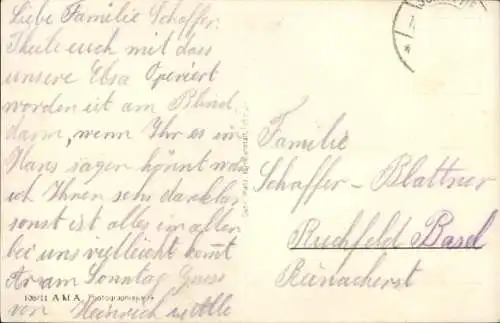 Liebe Familie Schaffer.
Theile euch mit dass
unsere Elsa Operiert
worden ist am Blind
darm, wenn Ihr es im
Hans sagen könnt wär
ich Ihnen sehr dankbar
sonst ist alles im alten
bei uns vielleicht komt
am Sonntag Gruss
von Heinrich u Alle
Familie
Schaffer-Blattner
Ruchfeld Basel
Reinacherst
A.M.A. Photographie